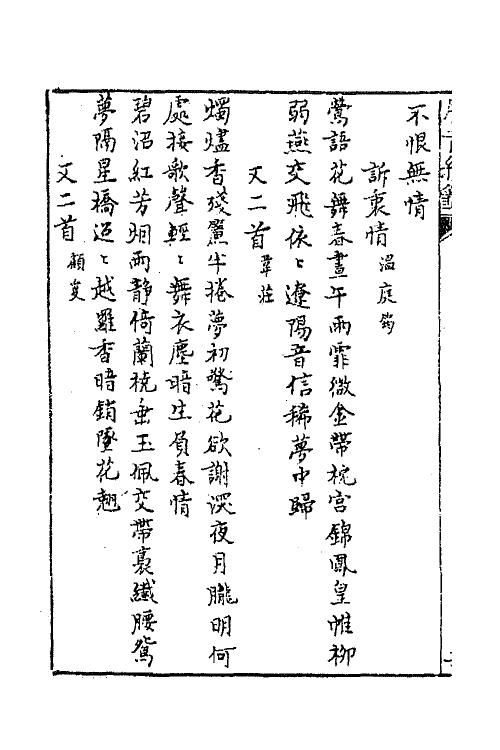 不恨無情
訴衷情 温庭筠
鶯語花舞春晝午雨霏微金帶枕宮錦鳳皇帷柳
弱燕交飛依〻遼陽音信稀夢中歸
又二首 韋莊
燭燼香殘簾半捲夢初驚花欲謝深夜月朧明何
處按歌聲輕〻舞衣塵暗生負春情
碧沼紅芳烟雨静倚蘭橈垂玉佩交帶裊纖腰鴛
夢隔星橋迢〻越羅香暗銷墜花翹
又二首 顧敻